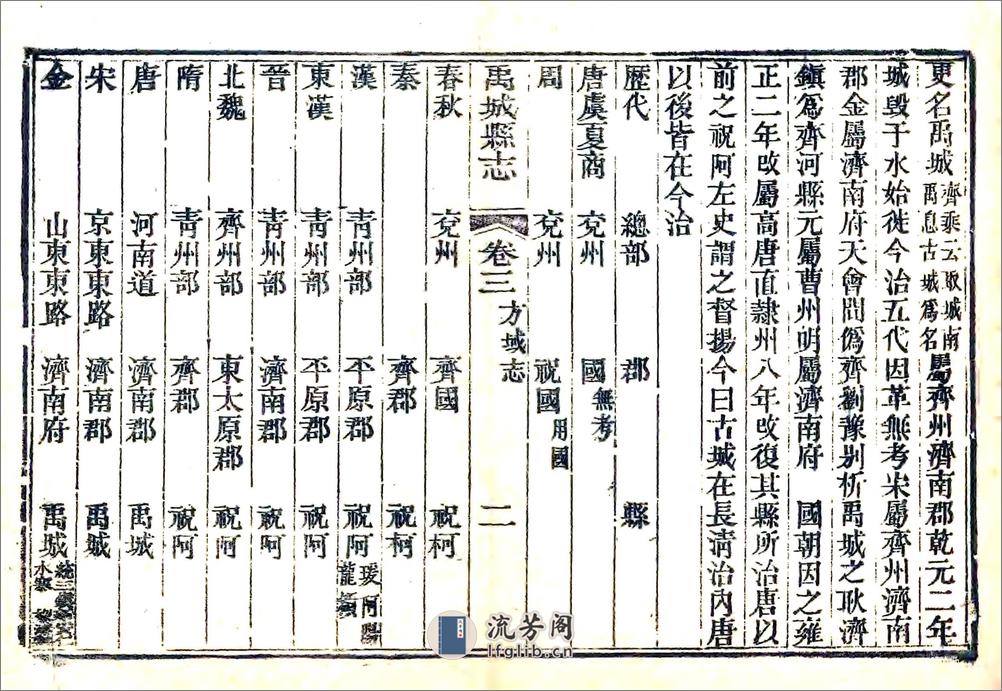 更名禹城齊乘云取城南禹息古城爲名屬齊州濟南郡乾元二年
城毀于水始徙今治五代因革無考宋屬齊州濟南
郡金屬濟南府天會間僞齊劉豫別析禹城之耿濟
鎮爲齊河縣元屬曹州明屬濟南府 國朝因之雍
正二年改屬高唐直隷州八年改復其縣所治唐以
前之祝阿左史謂之督揚今曰古城在長淸治內唐
以後皆在今治
歷代 總部 郡 縣
唐虞夏商 兗州 國無考
周 兗州 祝國用國
禹城縣志 卷三 方域志 二
春秋 兗州 齊國 祝柯
秦 齊郡 祝柯
漢 靑州部 平原郡 祝阿瑗阿陽龍
東漢 靑州部 平原郡 祝阿
晉 靑州部 濟南郡 祝阿
北魏 齊州部 東太原郡 祝阿
隋 靑州部 齊郡 祝阿
唐 河南道 濟南郡 禹城
宋 京東東路 濟南郡 禹城
金 山東東路 濟南府 禹城統三水寨
流芳阁
lfglib.cn